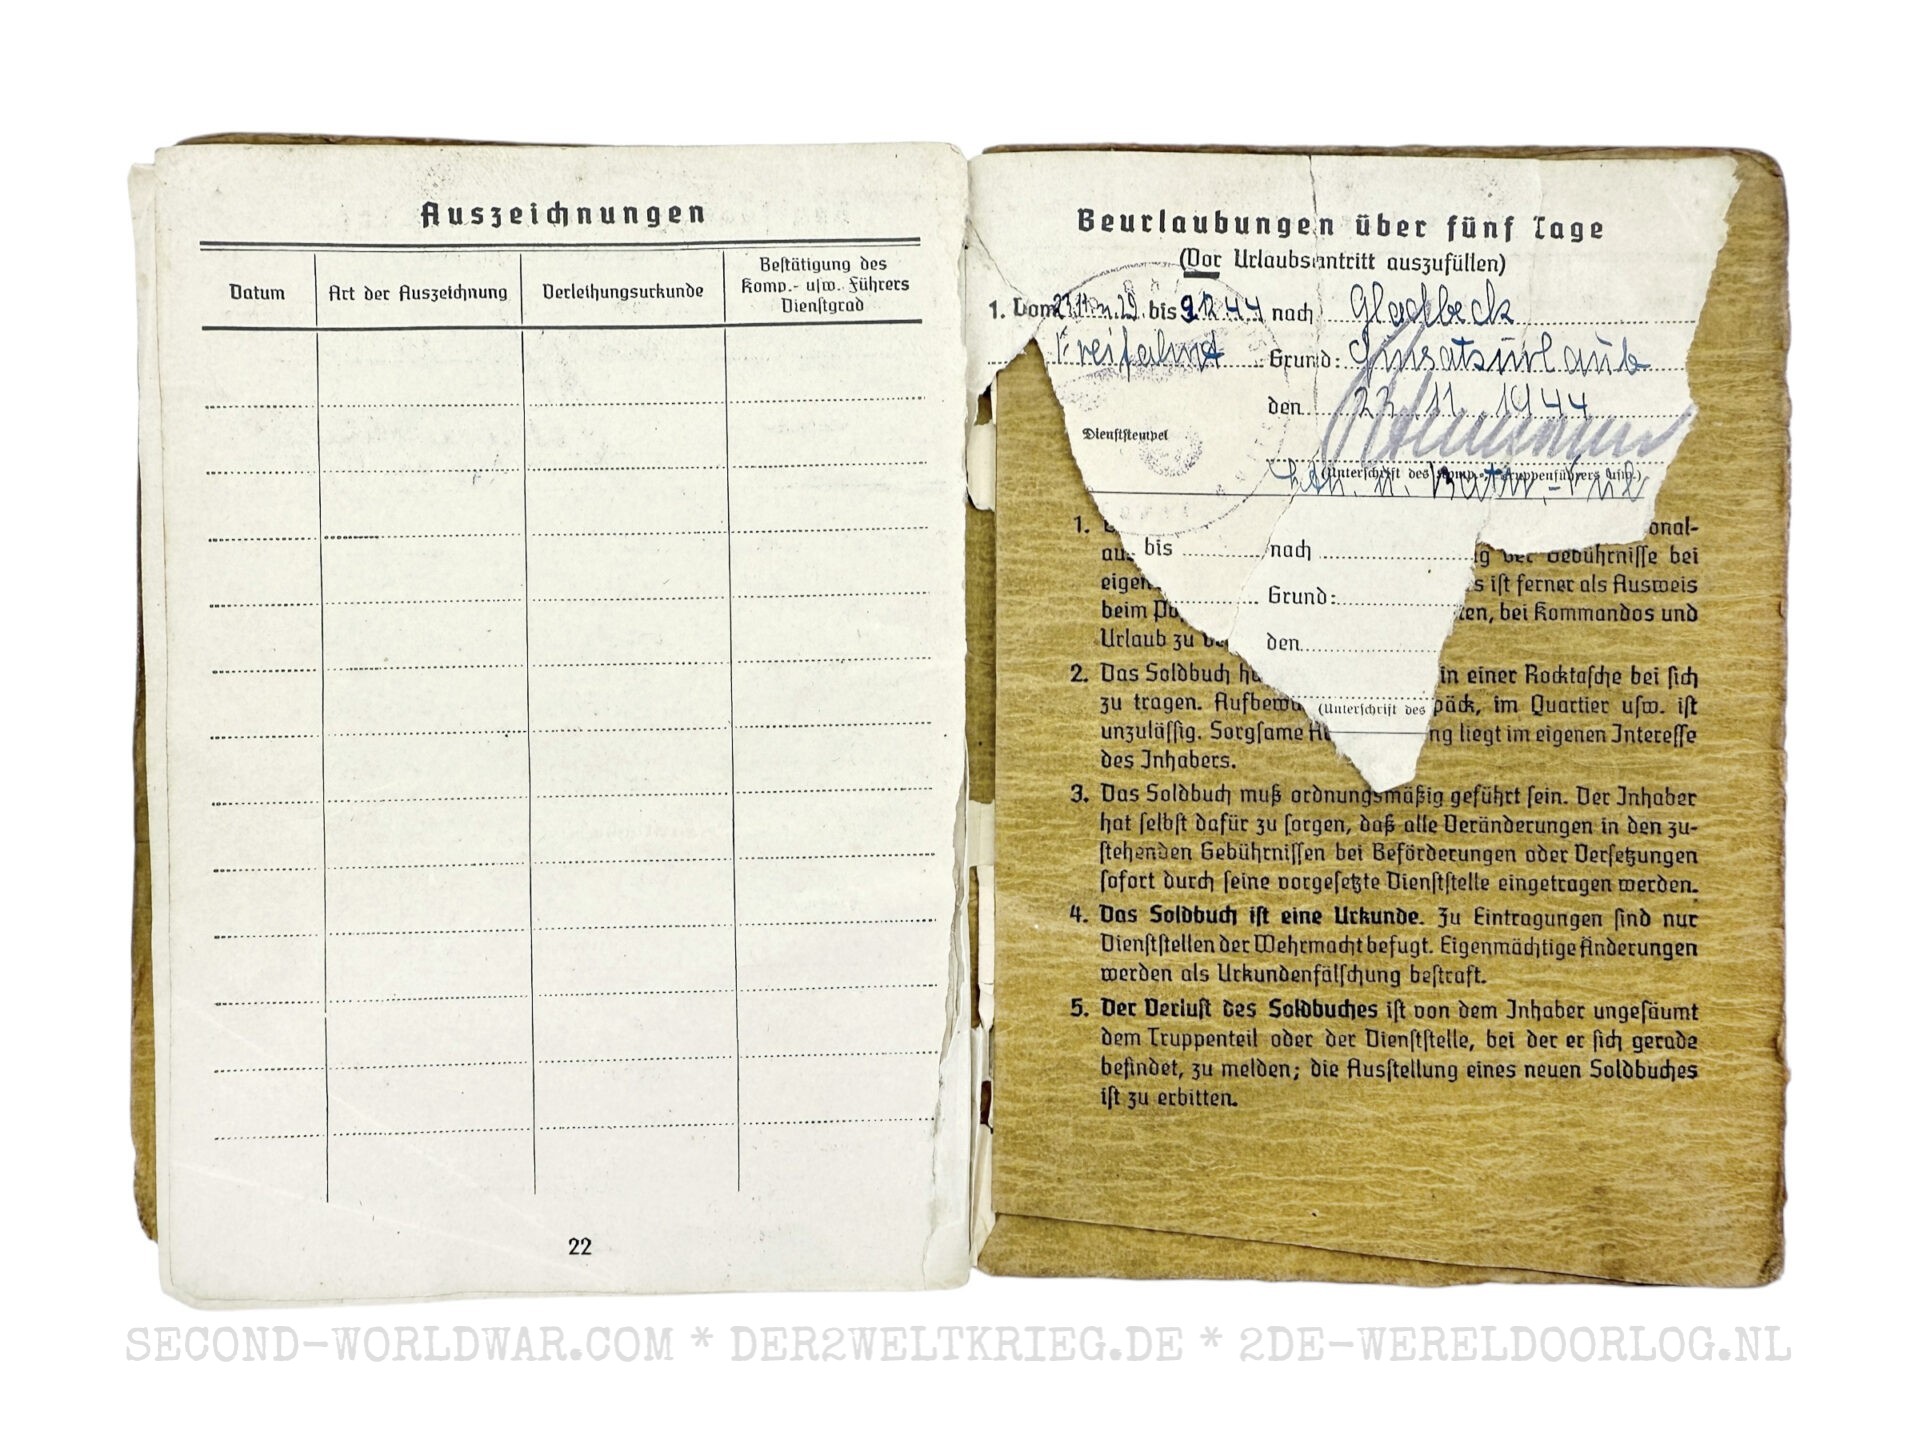 Auszeichnungen
Datum
Art der Auszeichnung
Verleihungsurkunde
Bestätigung des
Komp.- usw. Führers
Dienstgrad
22
Beurlaubungen über fünf Tage
(Vor Urlaubsantritt auszufüllen)
1. Vom 23.11. bis 9.12.44 nach Gladbeck
Grund: Einsatzurlaub
den 23.11.1944
Dienststempel
(Unterschrift des Komp.- Truppenführers usw.)
bis nach
Grund:
den
(Unterschrift des
1.
onal-
au
g der Gebührnisse bei
eigen
s ist ferner als Ausweis
beim Po
ten, bei Kommandos und
Urlaub zu
2. Das Soldbuch ha
in einer Rocktasche bei sich
zu tragen. Aufbewa
päck, im Quartier usw. ist
unzulässig. Sorgsame
ng liegt im eigenen Interesse
des Inhabers.
3. Das Soldbuch muß ordnungsmäßig geführt sein. Der Inhaber
hat selbst dafür zu sorgen, daß alle Veränderungen in den zu-
stehenden Gebührnissen bei Beförderungen oder Versetzungen
sofort durch seine vorgesetzte Dienststelle eingetragen werden.
4. Das Soldbuch ist eine Urkunde. Zu Eintragungen sind nur
Dienststellen der Wehrmacht befugt. Eigenmächtige Änderungen
werden als Urkundenfälschung bestraft.
5. Der Verlust des Soldbuches ist von dem Inhaber ungesäumt
dem Truppenteil oder der Dienststelle, bei der er sich gerade
befindet, zu melden; die Ausstellung eines neuen Soldbuches
ist zu erbitten.
SECOND-WORLDWAR.COM * DER2WELTKRIEG.DE * 2DE-WERELDOORLOG.NL